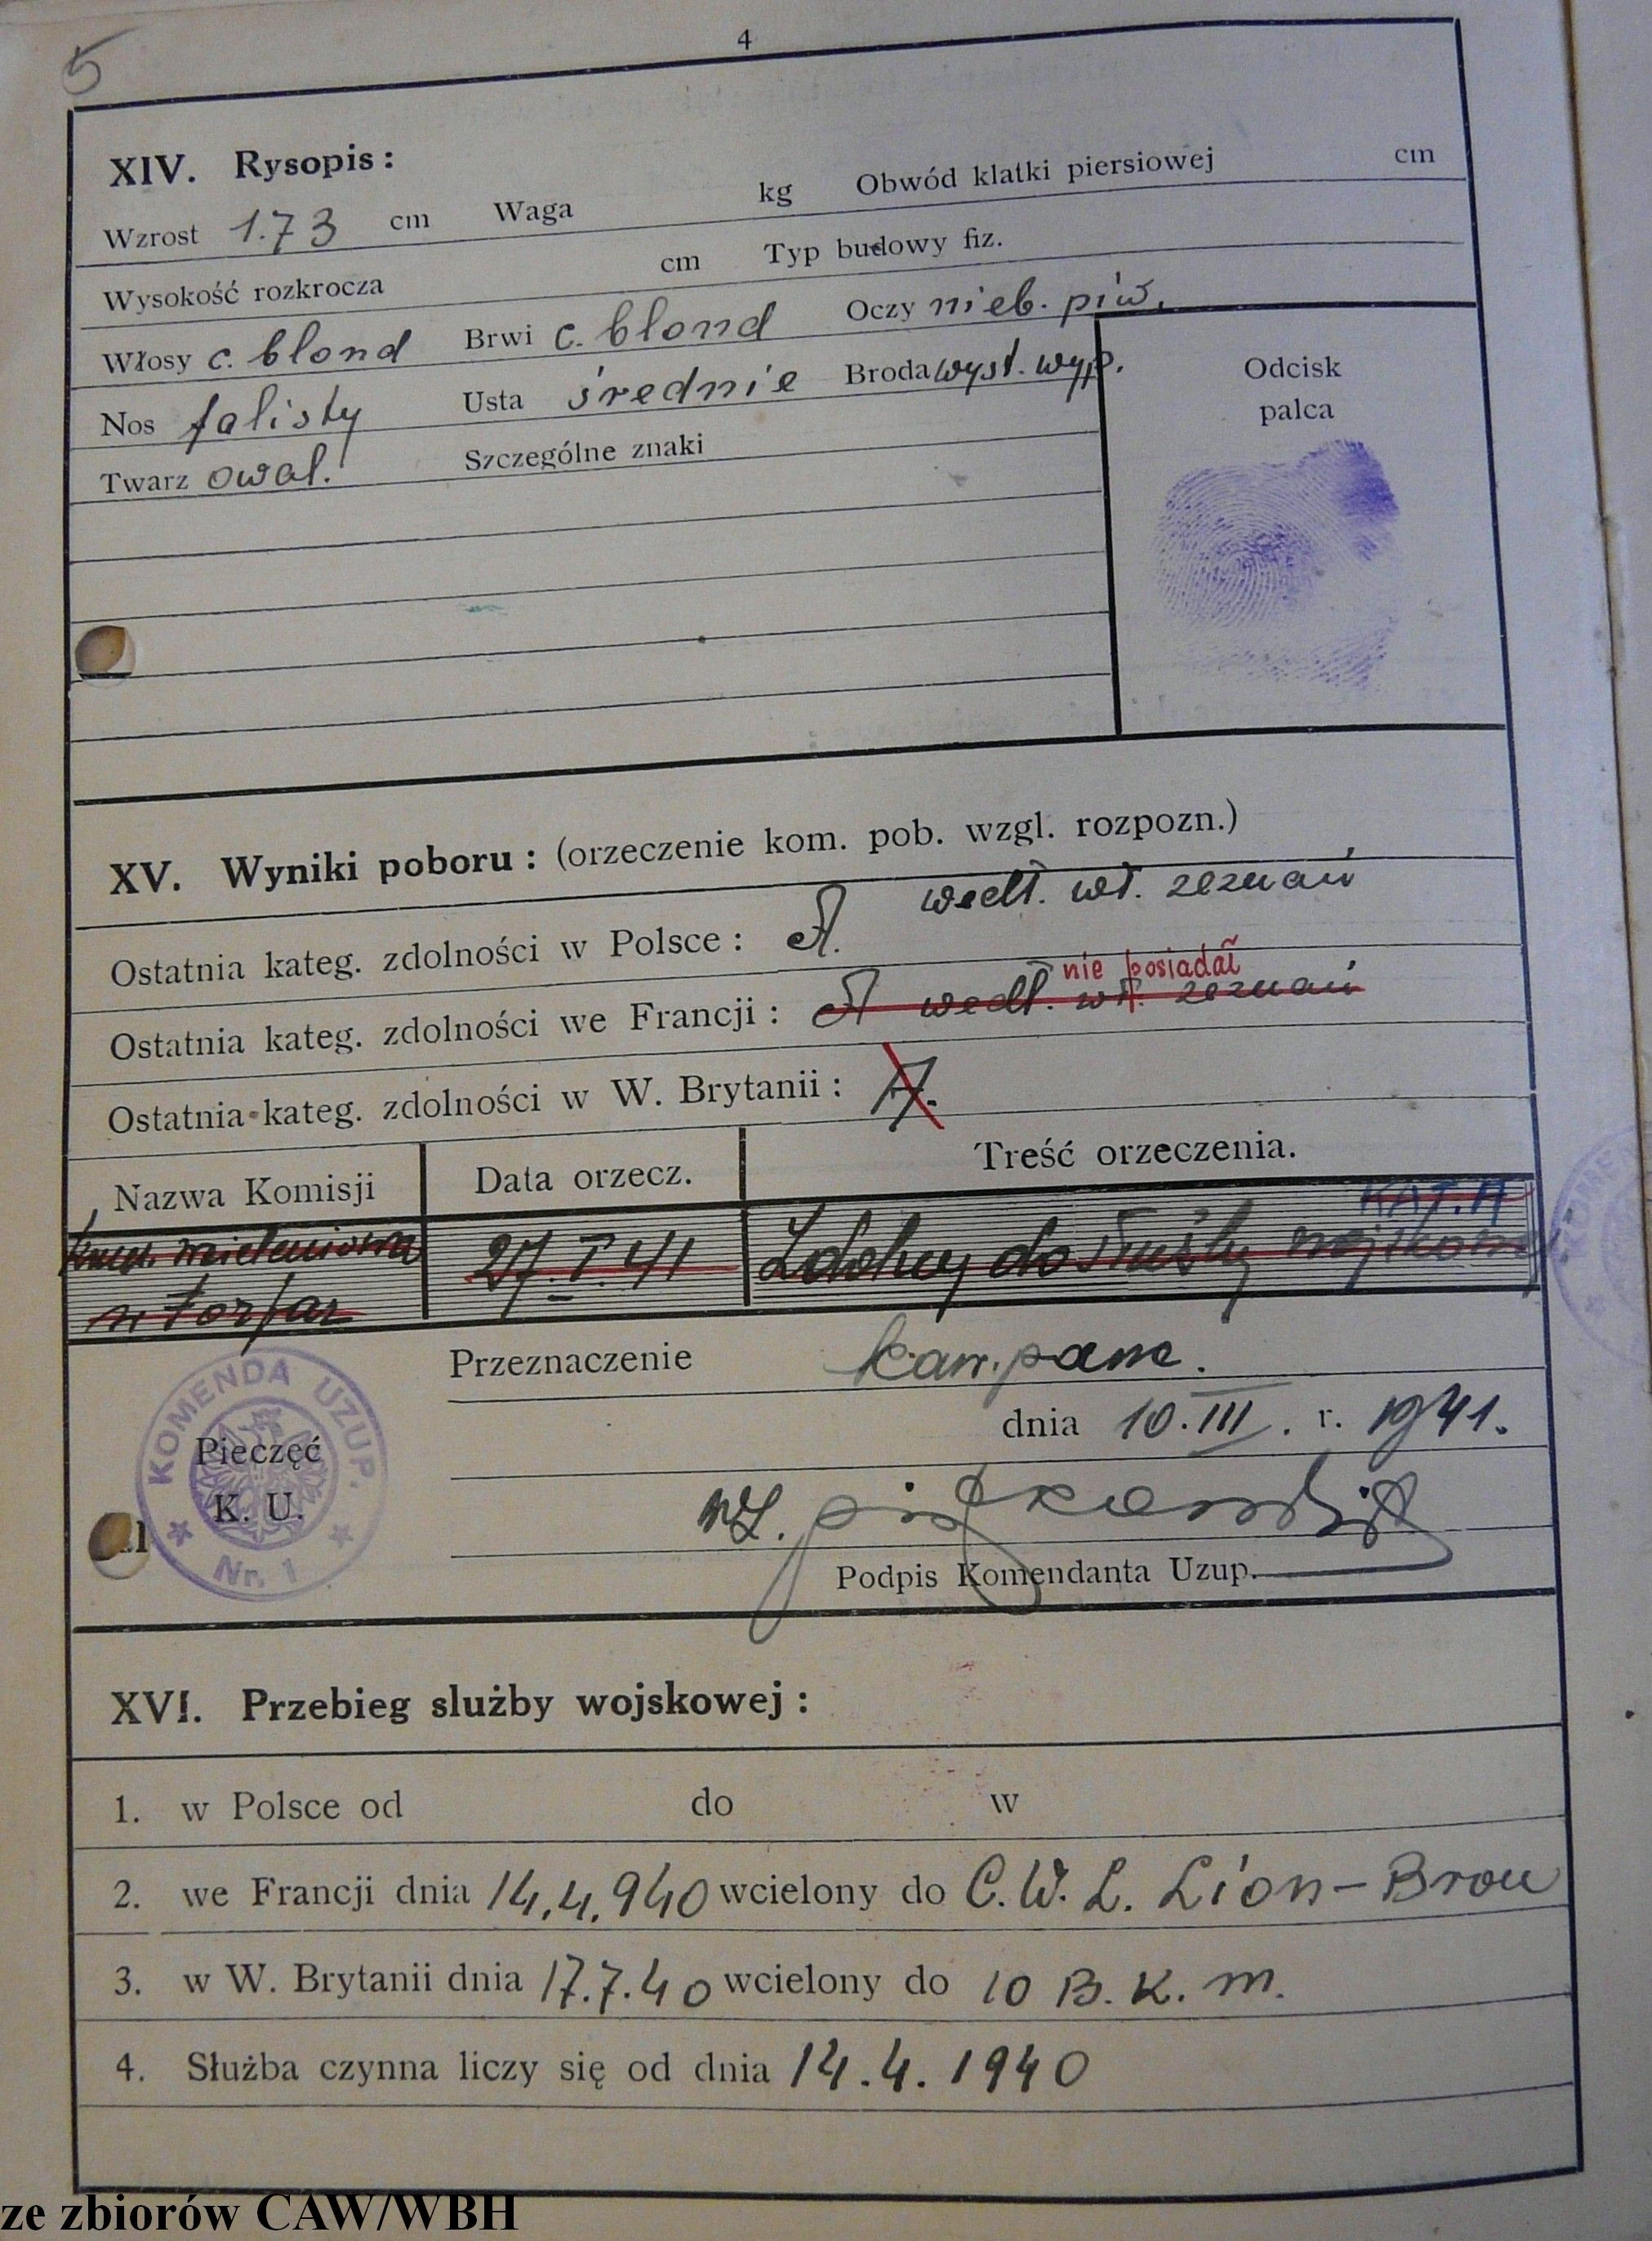 5
4
XIV. Rysopis:
Wzrost 1.73 cm Waga kg Obwód klatki piersiowej cm
Wysokość rozkrocza cm Typ budowy fiz.
Włosy c. blond Brwi c. blond Oczy nieb. piw.
Nos falisty Usta średnie Broda wyst. wyp.
Twarz owal. Szczególne znaki
Odcisk
palca
XV. Wyniki poboru: (orzeczenie kom. pob. wzgl. rozpozn.)
Ostatnia kateg. zdolności w Polsce: A. wedł. wł. zeznań
nie posiadał
Ostatnia kateg. zdolności we Francji: A wedł. wł. zeznań
Ostatnia kateg. zdolności w W. Brytanii: A.
Nazwa Komisji Data orzecz. Treść orzeczenia.
KAT. A
27.I.41 Zdolny do służby wojskowej
w Forfar
Przeznaczenie
dnia 10.III. r. 1941.
KOMENDA UZUP.
Pieczęć
K. U.
Nr. 1
Podpis Komendanta Uzup.
XVI. Przebieg służby wojskowej:
1. w Polsce od do w
2. we Francji dnia 14.4.940 wcielony do C.W.L. Lion-Brou
3. w W. Brytanii dnia 17.7.40 wcielony do 10 B.K.m.
4. Służba czynna liczy się od dnia 14.4.1940
ze zbiorów CAW/WBH